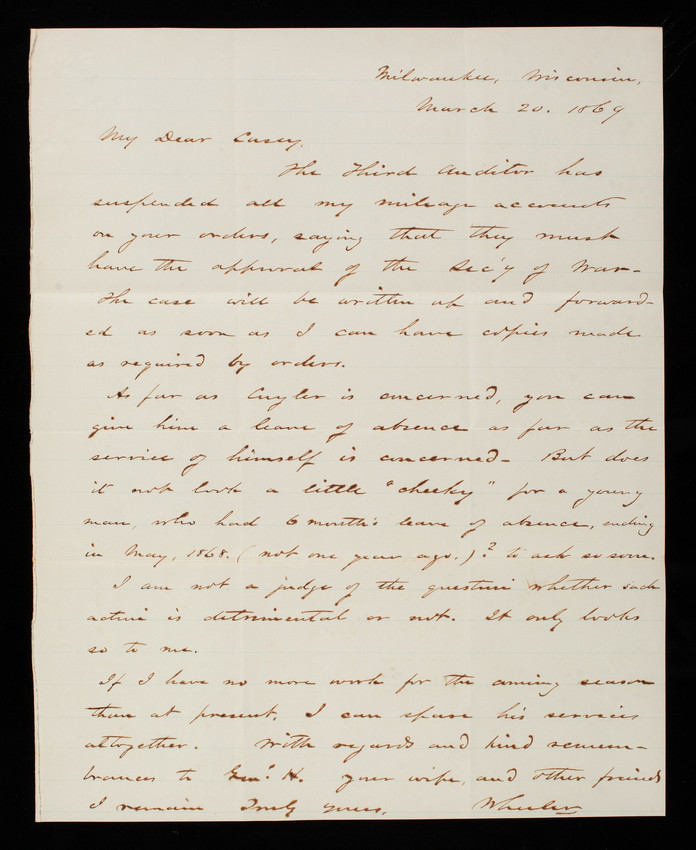 Milwaukee, Wisconsin,
March 20. 1869
My Dear Casey,
The Third Auditor has
suspended all my mileage accounts
on your orders, saying that they must
have the approval of the Sec'y of War-
The case will be written up and forward-
ed as soon as I can have copies made
as required by orders.
As far as Cuyler is concerned, you can
give him a leave of absence as far as the
service of himself is concerned- But does
it not look a little "cheeky" for a young
man, who had 6 month's leave of absence, ending
in May, 1868. (not one year ago.)? to ask so soon.
I am not a judge of the question whether such
action is detrimental or not. It only looks
so to me.
If I have no more work for the coming season
than at present, I can spare his services
altogether. With regards and kind remem-
brances to Gen'l H. your wife, and other friends
I remain Truly yours, Wheeler